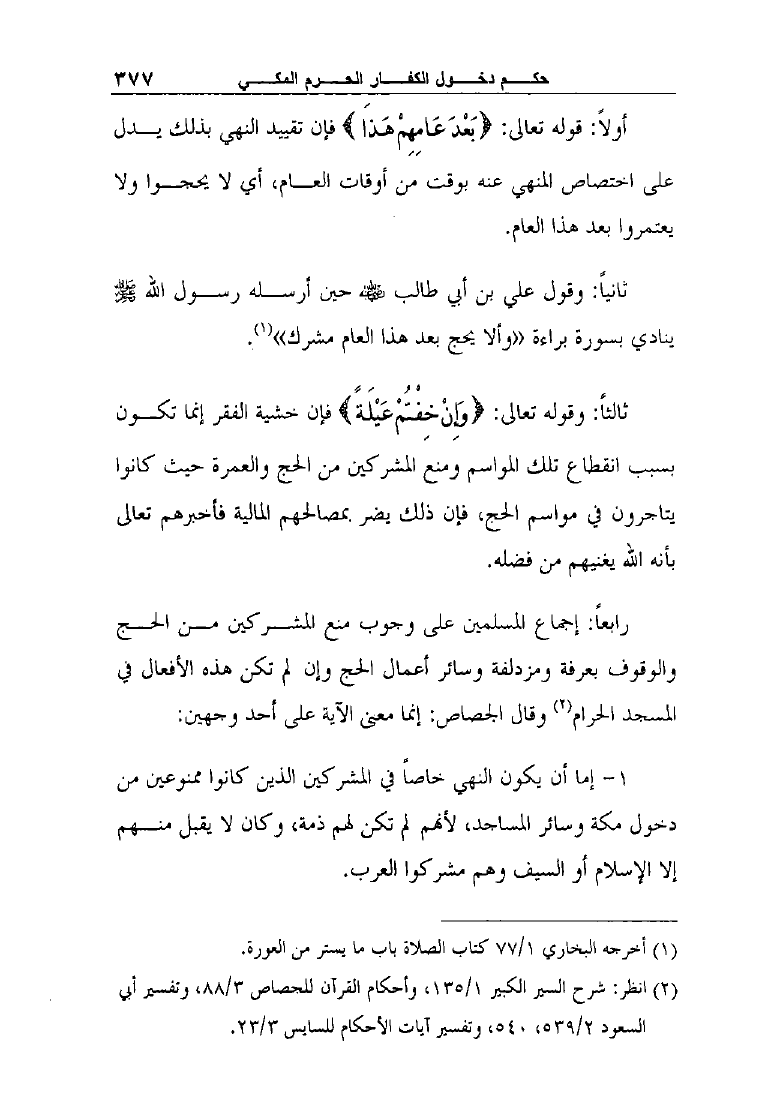 حكم دخول الكفار الحرم المكي ٣٧٧
أولاً: قوله تعالى: ﴿بَعْدَ عَامِهِمْ هَذَا﴾ فإن تقييد النهي بذلك يدل
على اختصاص المنهي عنه بوقت من أوقات العام، أي لا يحجوا ولا
يعتمروا بعد هذا العام.
ثانياً: وقول علي بن أبي طالب ﷺ حين أرسله رسول الله ﷺ
ينادي بسورة براءة «وألا يحج بعد هذا العام مشرك»(١).
ثالثاً: وقوله تعالى: ﴿وَإِنْ خِفْتُمْ عَيْلَةً﴾ فإن خشية الفقر إنما تكون
بسبب انقطاع تلك المواسم ومنع المشركين من الحج والعمرة حيث كانوا
يتاجرون في مواسم الحج، فإن ذلك يضر بمصالحهم المالية فأخبرهم تعالى
بأنه الله يغنيهم من فضله.
رابعاً: إجماع المسلمين على وجوب منع المشركين من الحج
والوقوف بعرفة ومزدلفة وسائر أعمال الحج وإن لم تكن هذه الأفعال في
المسجد الحرام(٢) وقال الجصاص: إنما معنى الآية على أحد وجهين:
١- إما أن يكون النهي خاصاً في المشركين الذين كانوا ممنوعين من
دخول مكة وسائر المساجد، لأنهم لم تكن لهم ذمة، وكان لا يقبل منهم
إلا الإسلام أو السيف وهم مشركوا العرب.
(١) أخرجه البخاري ٧٧/١ كتاب الصلاة باب ما يستر من العورة.
(٢) انظر: شرح السير الكبير ١٣٥/١، وأحكام القرآن للجصاص ٨٨/٣، وتفسير أبي
السعود ٥٣٩/٢، ٥٤٠، وتفسير آيات الأحكام للسايس ٢٣/٣.